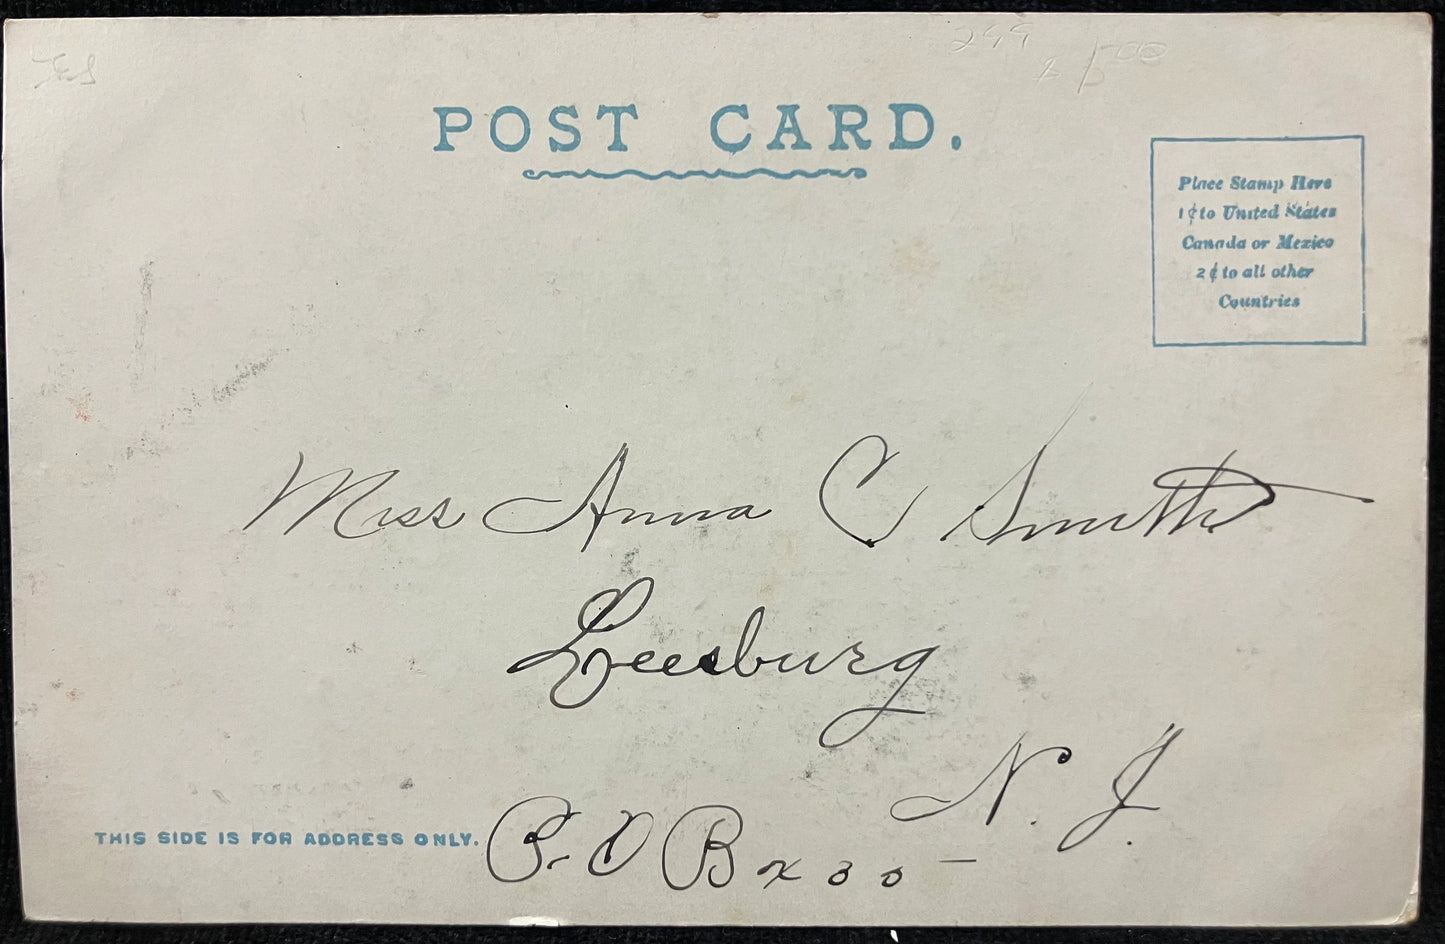 299
500
POST CARD.
Place Stamp Here
1¢ to United States
Canada or Mexico
2¢ to all other
Countries
Miss Anna C Smith
Leesburg
N. J.
THIS SIDE IS FOR ADDRESS ONLY.
P. O Box